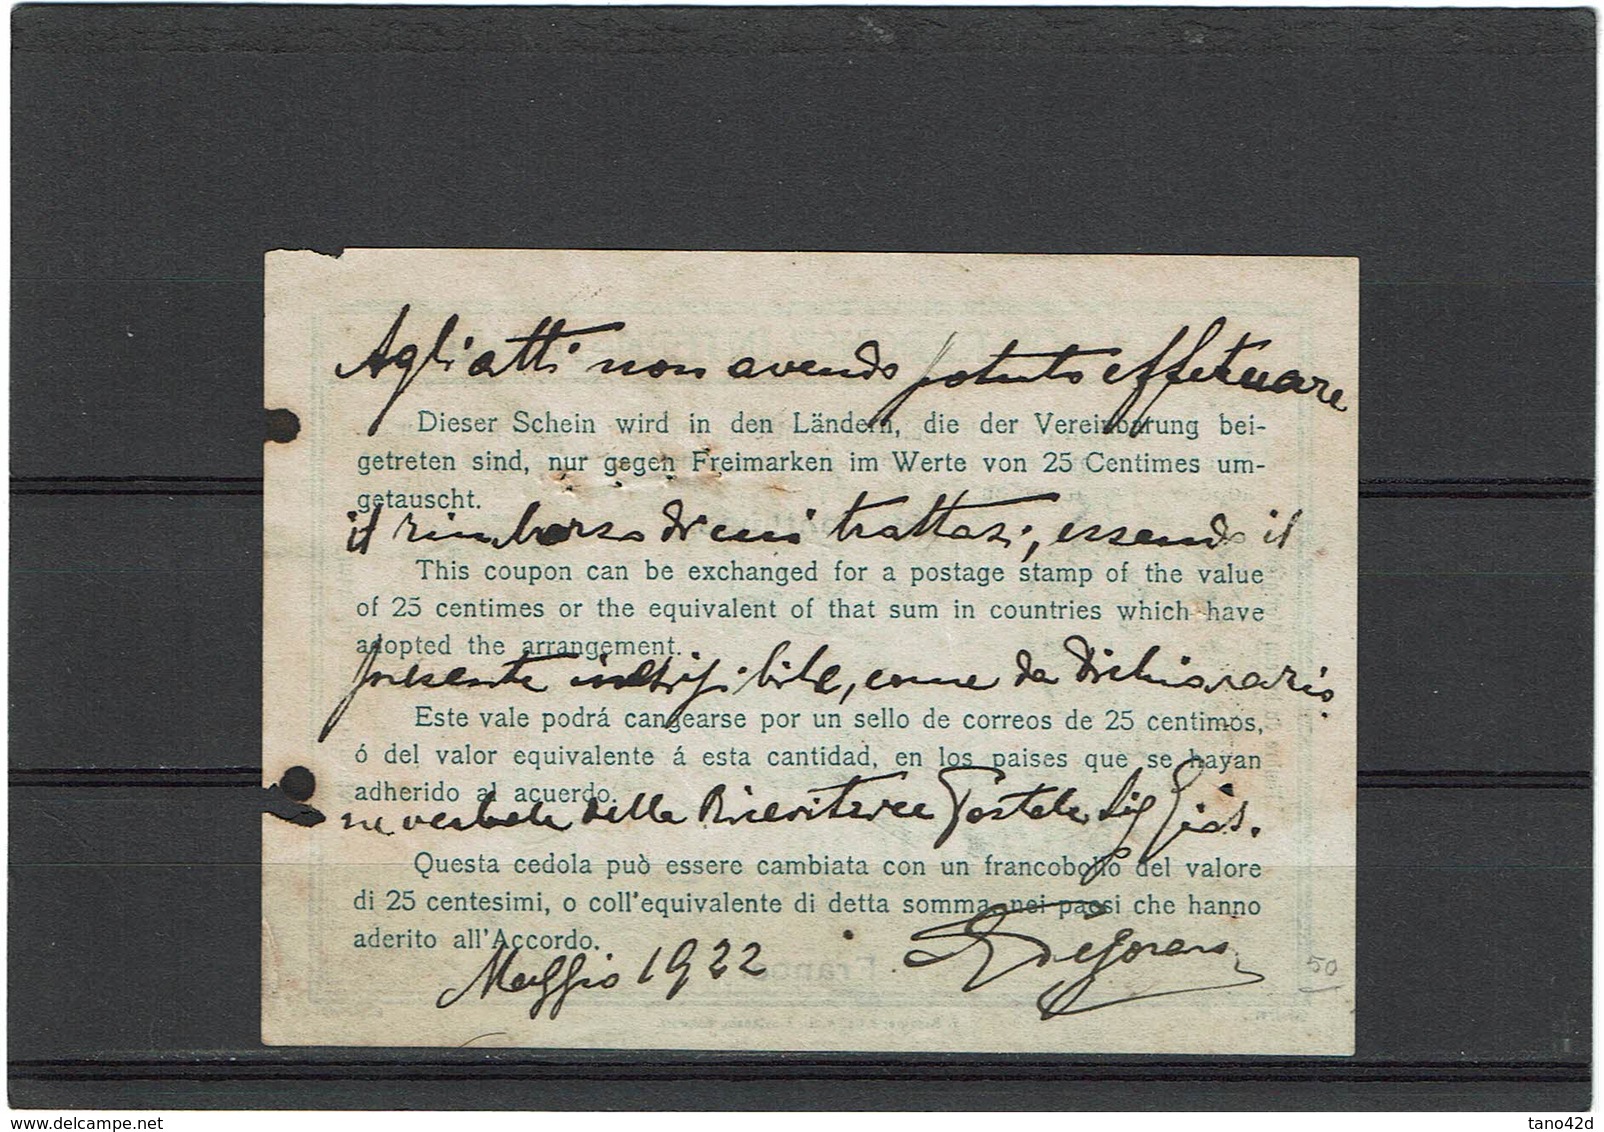 Agli atti non avendo potuto effettuare
Dieser Schein wird in den Ländern, die der Vereinbarung bei-
getreten sind, nur gegen Freimarken im Werte von 25 Centimes um-
getauscht.
il rimborso di cui trattasi, essendo il
This coupon can be exchanged for a postage stamp of the value
of 25 centimes or the equivalent of that sum in countries which have
adopted the arrangement.
presente inesigibile, come da dichiarazio
Este vale podrá cangearse por un sello de correos de 25 centimos,
ó del valor equivalente á esta cantidad, en los paises que se hayan
adherido al acuerdo.
ne verbale della Ricevitrice Postale Sig
Questa cedola può essere cambiata con un francobollo del valore
di 25 centesimi, o coll'equivalente di detta somma nei paesi che hanno
aderito all'Accordo.
Maggio 1922
50
delcampe.net
tano42d